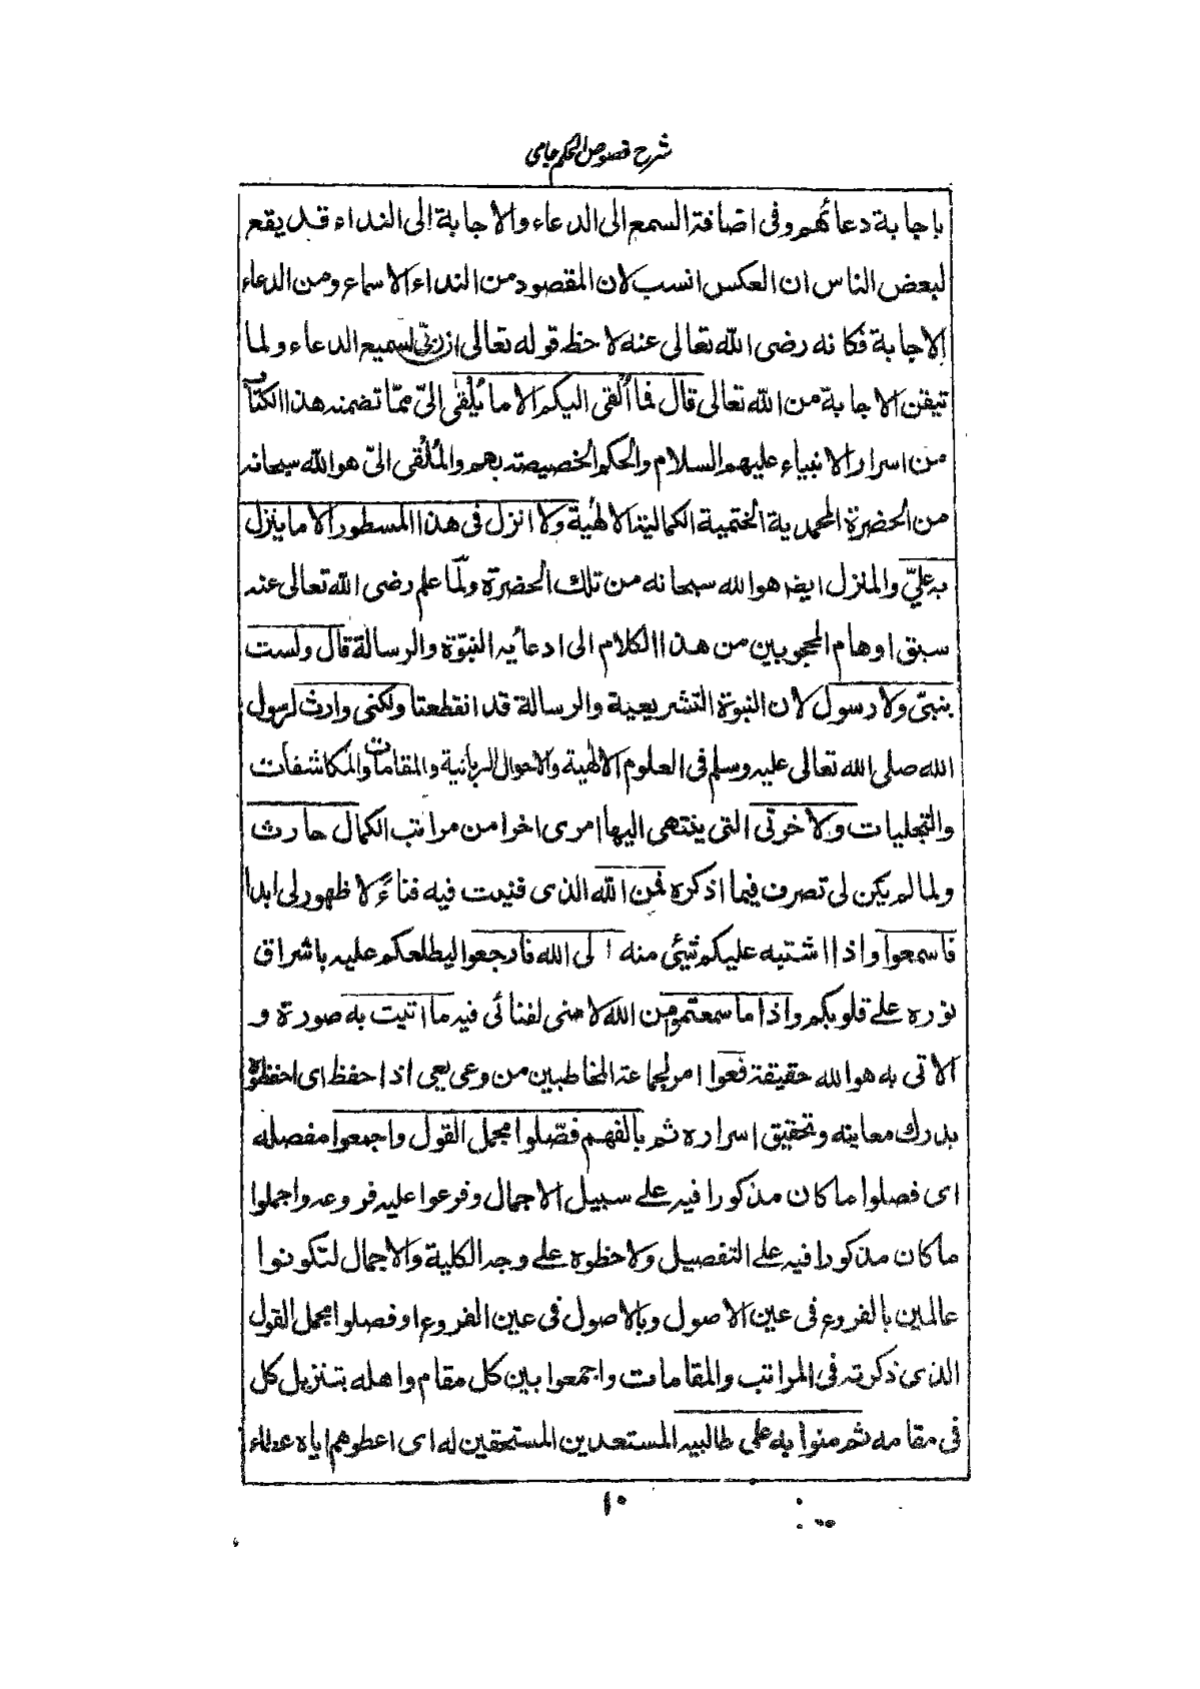 شرح فصوص الحكم جامى
باجابة دعائهم وفى اضافة السمع الى الدعاء والاجابة الى النداء قد يقع
لبعض الناس ان العكس انسب لان المقصود من النداء الاسماع ومن الدعاء
الاجابة فكانه رضى الله تعالى عنه لاحظ قوله تعالى ان ربّى لسميع الدعاء ولما
تيقن الاجابة من الله تعالى قال فما اُلقى اليكم الا ما يُلقٰى الىّ ممّا تضمنه هذا الكتاب
من اسرار الانبياء عليهم السلام والحكم الخصيصة بهم والمُلْقى الىّ هو الله سبحانه
من الحضرة المحمدية الختمية الكمالية الالٰهية ولا انزل فى هذا المسطور الا ما ينزل
به علىّ والمنزل ايضا هو الله سبحانه من تلك الحضرة ولمّا علم رضى الله تعالى عنه
سبق اوهام المحجوبين من هذا الكلام الى ادعائه النبوّة والرسالة قال ولست
بنبىّ ولا رسول لان النبوة التشريعية والرسالة قد انقطعتا ولكنى وارث لرسول
الله صلى الله تعالى عليه وسلم فى العلوم الالٰهية والاحوال الربانية والمقامات والمكاشفات
والتجليات ولاخرتى التى ينتهى اليها امرى اخرا من مراتب الكمال حارث
ولما لم يكن لى تصرف فيما اذكره فمن الله الذى فنيت فيه فناءً لا ظهور لى ابدا
فاسمعوا واذا اشتبه عليكم شئ منه الى الله فارجعوا ليطلعكم عليه باشراق
نوره على قلوبكم واذا ما سمعتم من الله لا منى لفنائى فيه ما اتيت به صورة و
الاتى به هو الله حقيقة فعوا امر لجماعة المخاطبين من وعى يعى اذا حفظ اى احفظوه
بدرك معاينه وتحقيق اسراره ثم بالفهم فصّلوا مجمل القول واجمعوا مفصله
اى فصلوا ما كان مذكورا فيه على سبيل الاجمال وفرعوا عليه فروعه واجملوا
ما كان مذكورا فيه على التفصيل ولاحظوه على وجه الكلية والاجمال لتكونوا
عالمين بالفروع فى عين الاصول وبالاصول فى عين الفروع او فصلوا مجمل القول
الذى ذكرته فى المراتب والمقامات واجمعوا بين كل مقام واهله بتنزيل كل
فى مقامه ثم منوا به على طالبيه المستعدين المستحقين له اى اعطوهم اياه عطاء
١٠